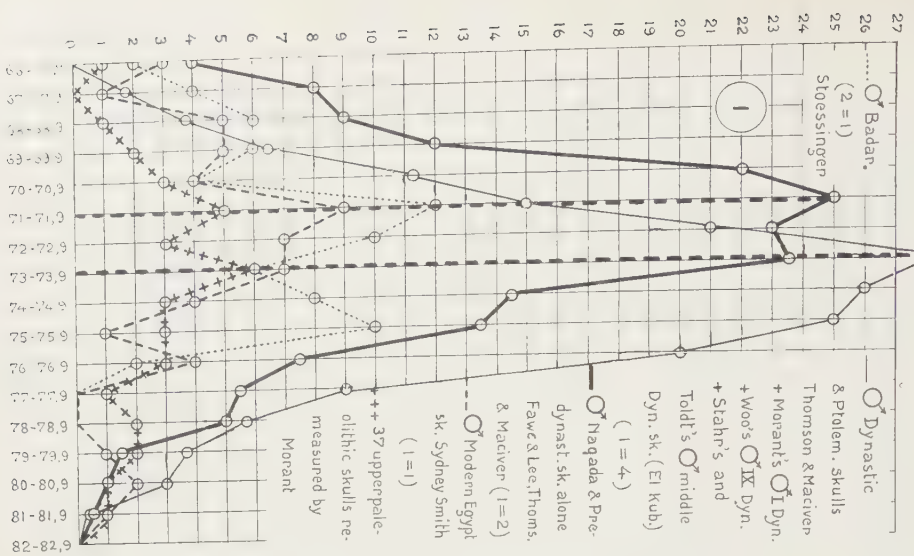 0 1 2 3 4 5 6 7 8 9 10 11 12 13 14 15 16 17 18 19 20 21 22 23 24 25 26 27
69-69,9
70-70,9
71-71,9
72-72,9
73-73,9
74-74,9
75-75,9
76-76,9
77-77,9
78-78,9
79-79,9
80-80,9
81-81,9
82-82,9
1
♂ Badar.
(2=1)
Stoessinger
— ♂ Dynastic
& Ptolem. skulls
Thomson & Maciver
+ Morant's ♂ I Dyn.
+ Woo's ♂ IX Dyn.
+ Stahr's and
Toldt's ♂ middle
Dyn. sk. (El Kub.)
(1=4)
— ♂ Naqada & Pre-
dynast. sk. alone
Fawc & Lee, Thoms.
& Maciver (1=2)
-- ♂ Modern Egypt
sk. Sydney Smith
(1=1)
+++ 37 upperpale-
olithic skulls re-
measured by
Morant